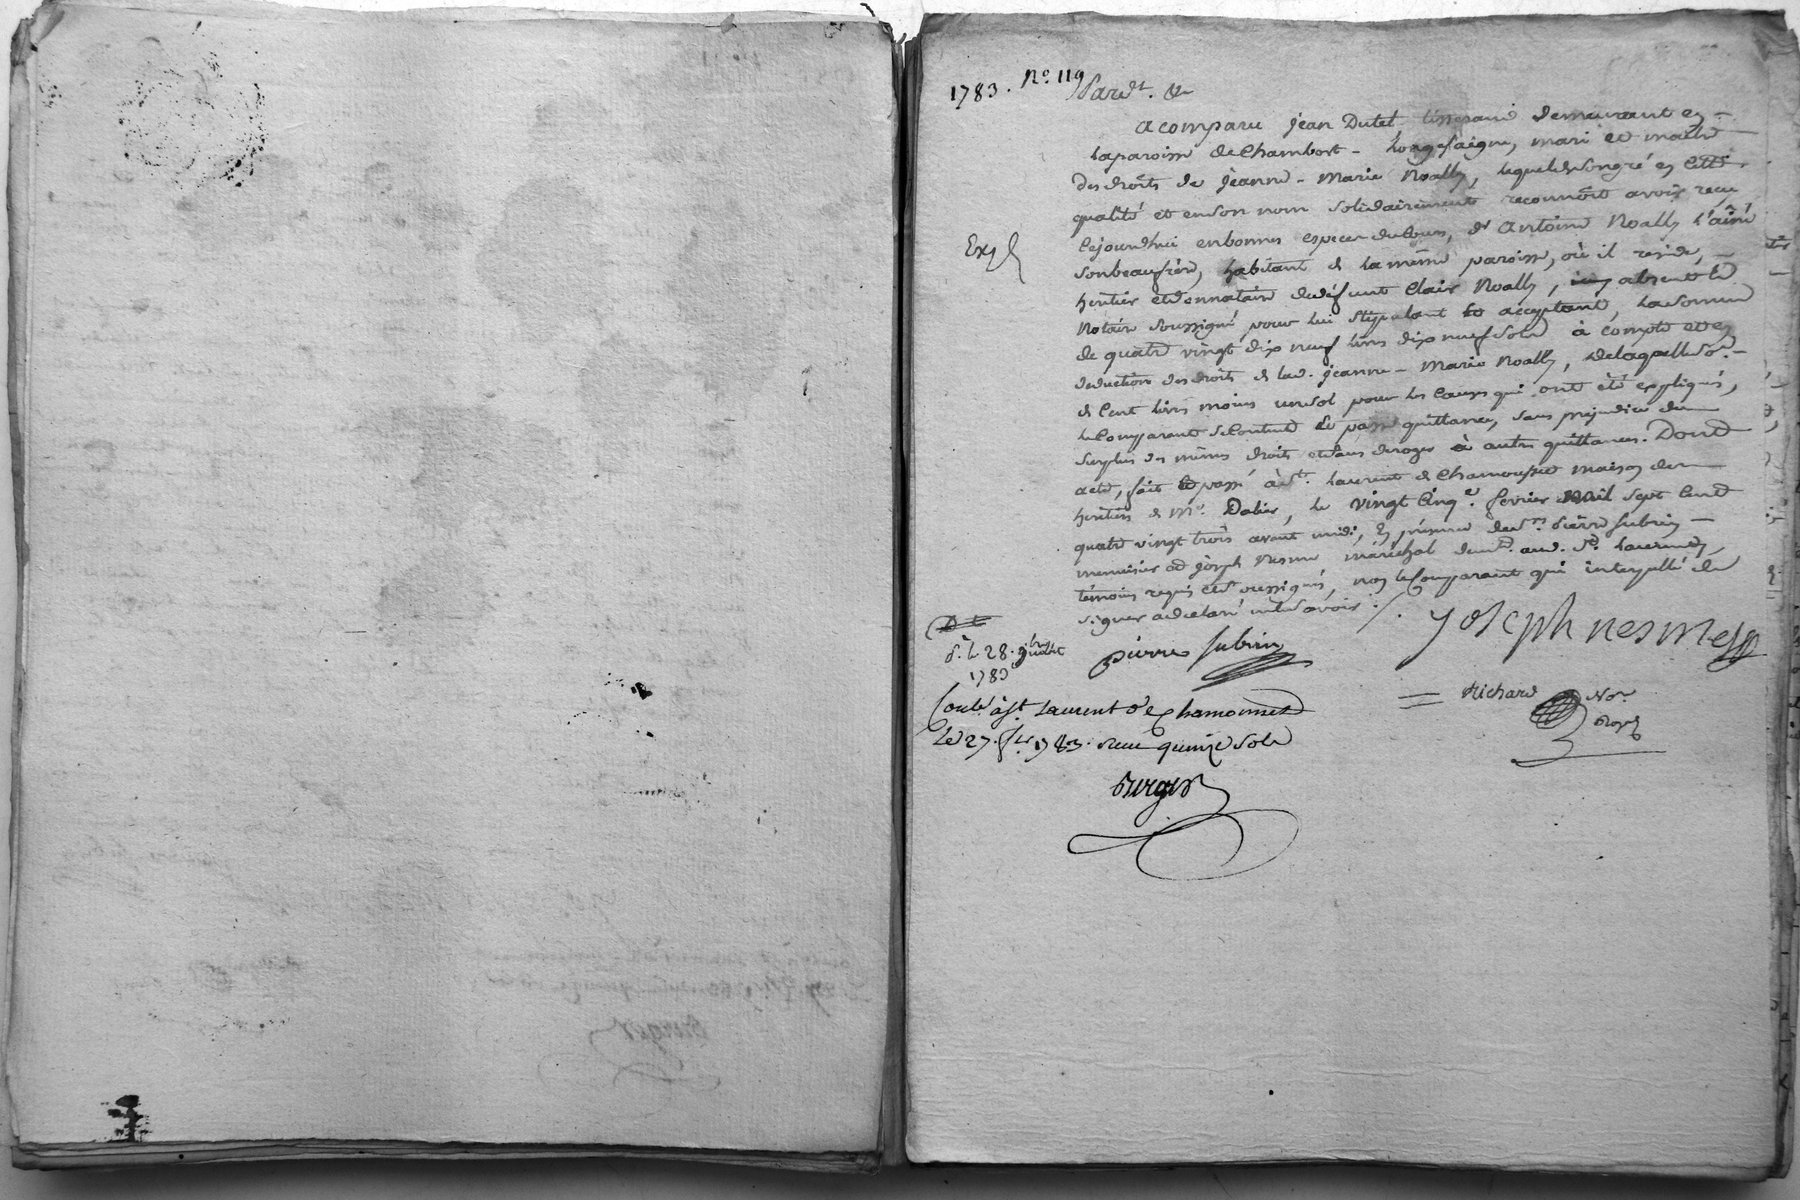 1783. No. 119
Pardt. &c
a comparu jean Dutel tisserand demeurant en
la paroisse de Chambost - Longesaigne, mari et maitre
des droits de jeanne - Marie Noally, lequel de son gré en cette
qualité et en son nom solidairement reconnoit avoir recu
cejourd'hui en bonnes especes du cours, d' antoine Noally l'ainé
son beaufrère, habitant de la même paroisse, où il reside,
heritier et donnataire du défunt Clair Noally, absent le
Notaire soussigné pour lui stipulant et acceptant, la somme
de quatre vingt dix neuf livres dix neuf sols à compte et en
deduction des droits de lad. jeanne - Marie Noally, de laquelle so.e
de Cent livres moins un sol pour les causes qui ont été expliqués,
le Comparant se Contente et passe quittance, sans prejudice du
surplus des mêmes droits et sans deroger à autres quittances. Dont
acte, fait et passé à St. Laurent de Chamousset maison des
heritiers de Me. Dalier, le vingt cinq.e fevrier Mil sept Cent
quatre vingt trois avant midi, en présence de sr. pierre subrin
menuisier et joseph Nesme maréchal demt. aud. St. Laurent,
témoins requis et soussignés, non le Comparant qui interpellé de
signer a declaré ne le savoir ./.
Exp
d. le 28. juillet
1783
pierre subrin
joseph nesme
Conlé à st Laurent de Chamousset
Le 27. fer. 1783. recu quinze sols
Richard Nore
Royal